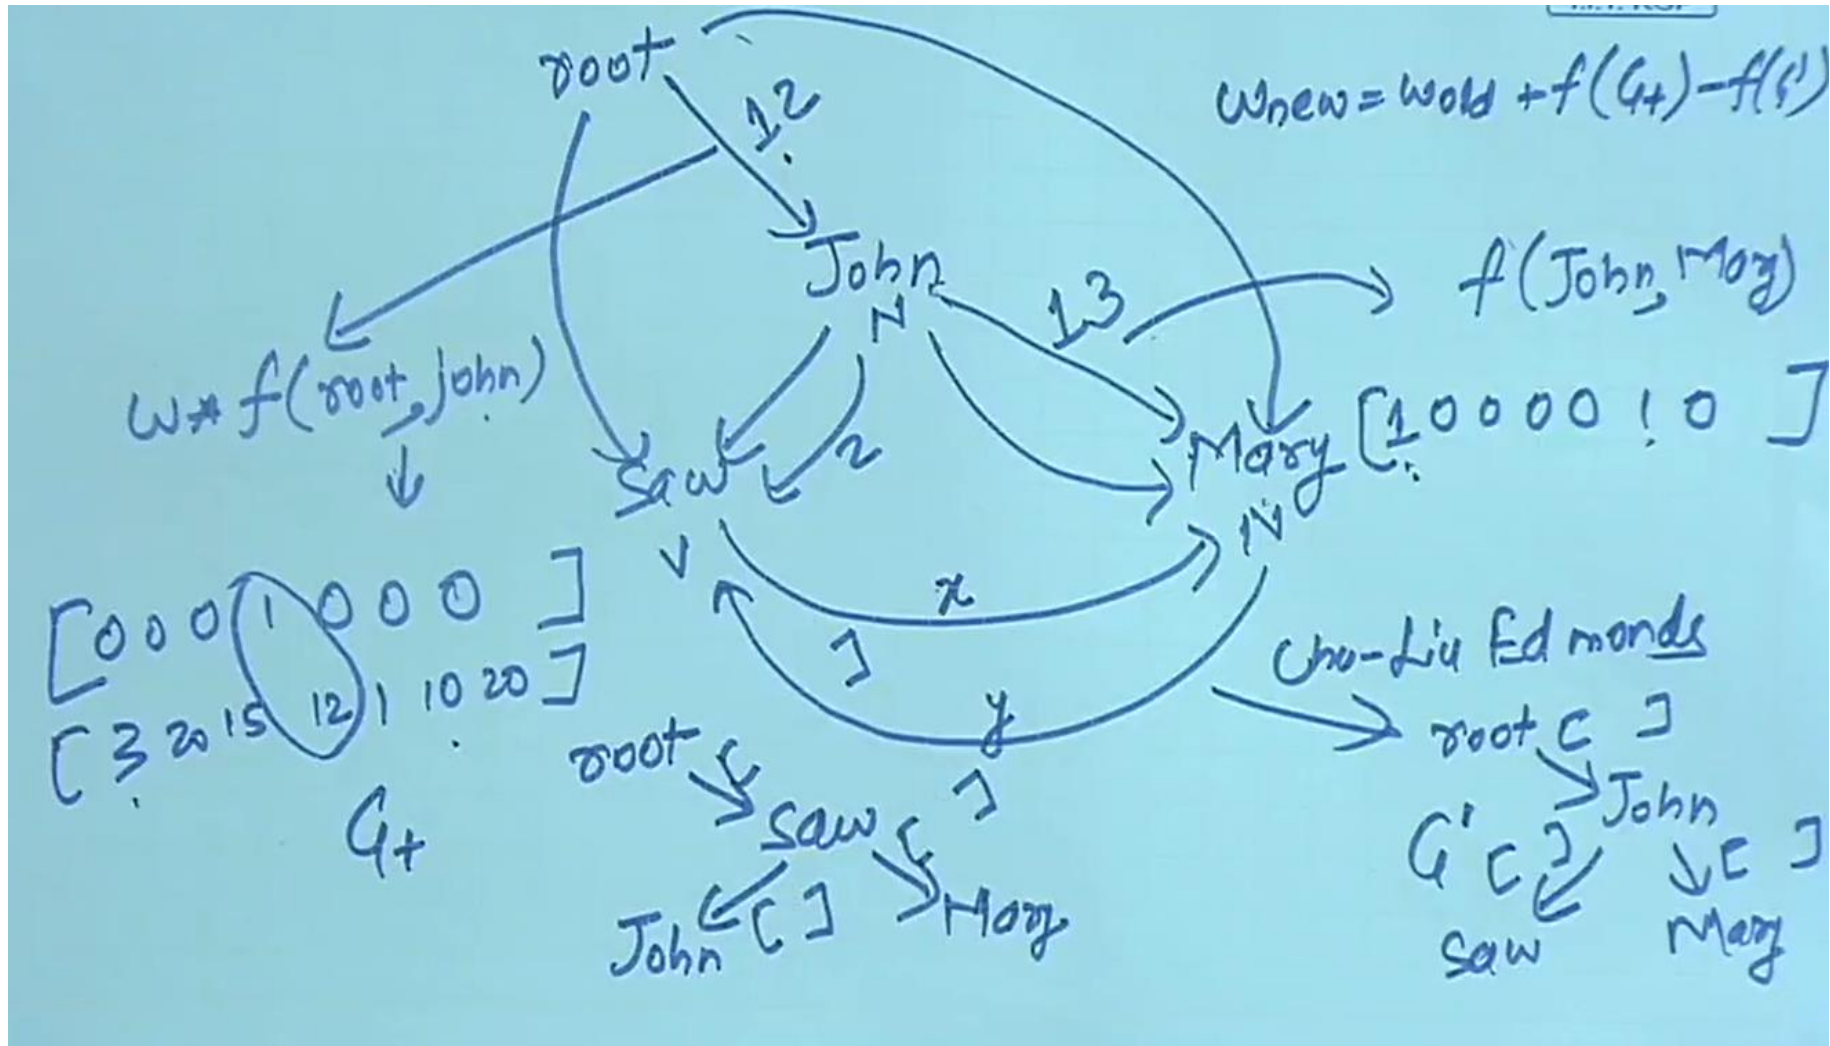 I.I.T. KGP
root
12
wnew = wold + f(G+) - f(G')
John
N
13
f(John, Mary)
w * f(root, john)
2
Saw
V
Mary
N
[1 0 0 0 0 1 0 ]
x
[0 0 0 1 0 0 0 ]
[3 20 15 12 1 10 20]
]
y
Chu-Liu Edmonds
G+
root [ ]
saw [ ]
John [ ]
Mary
root [ ]
John
G' [ ]
[ ]
saw
Mary